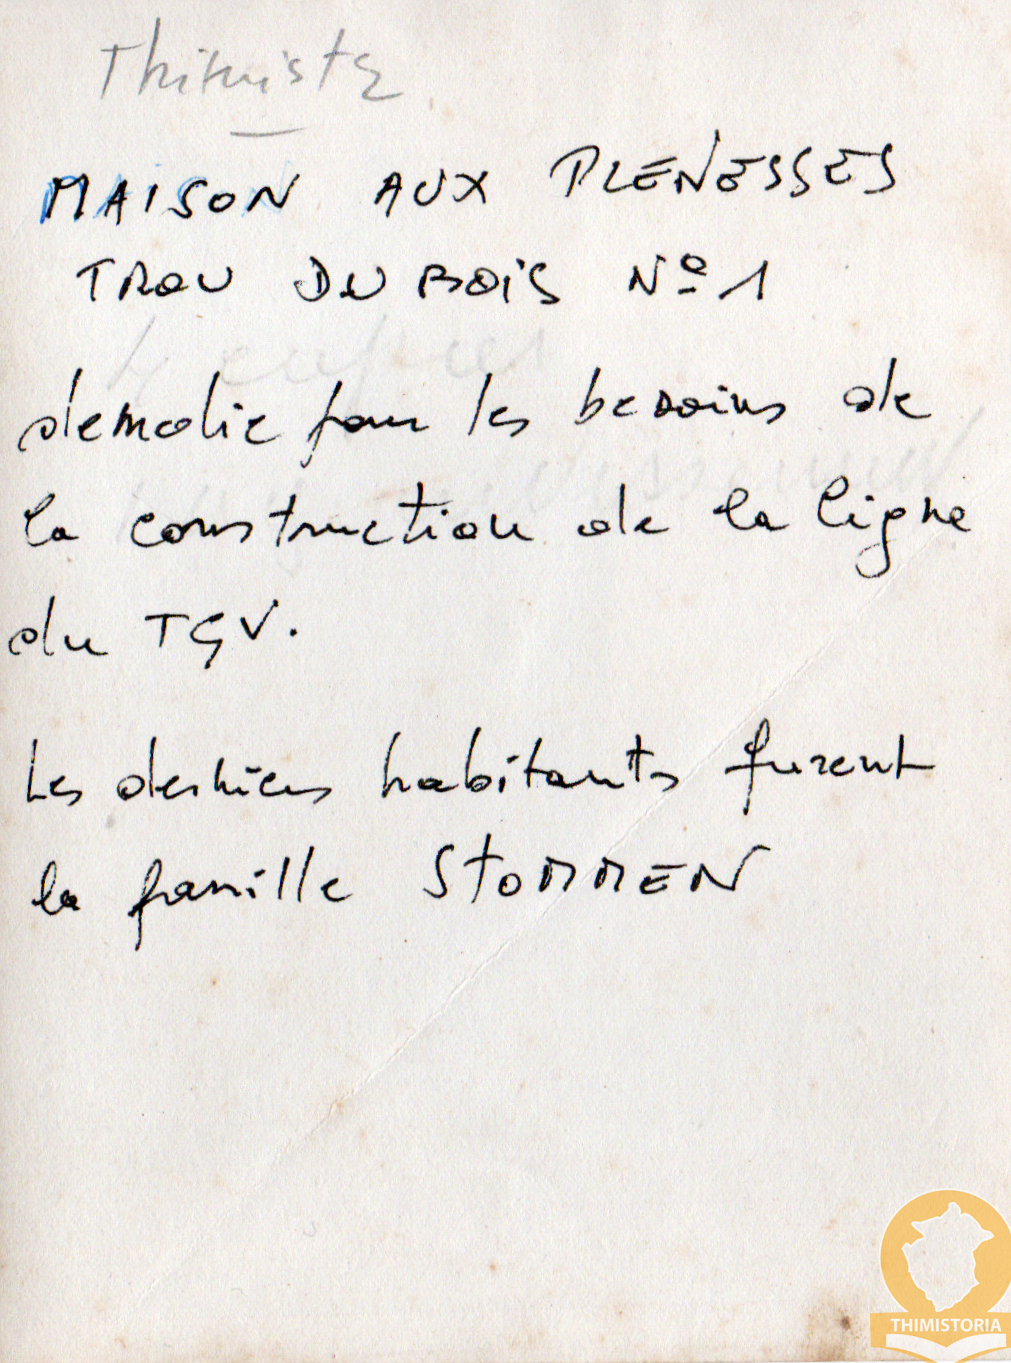 Thimister
MAISON AUX PLENESSES
TROU DU BOIS Nº 1
demolie pour les besoins de
la construction de la ligne
du TGV.
Les derniers habitants furent
la famille STOMMEN
THIMISTORIA